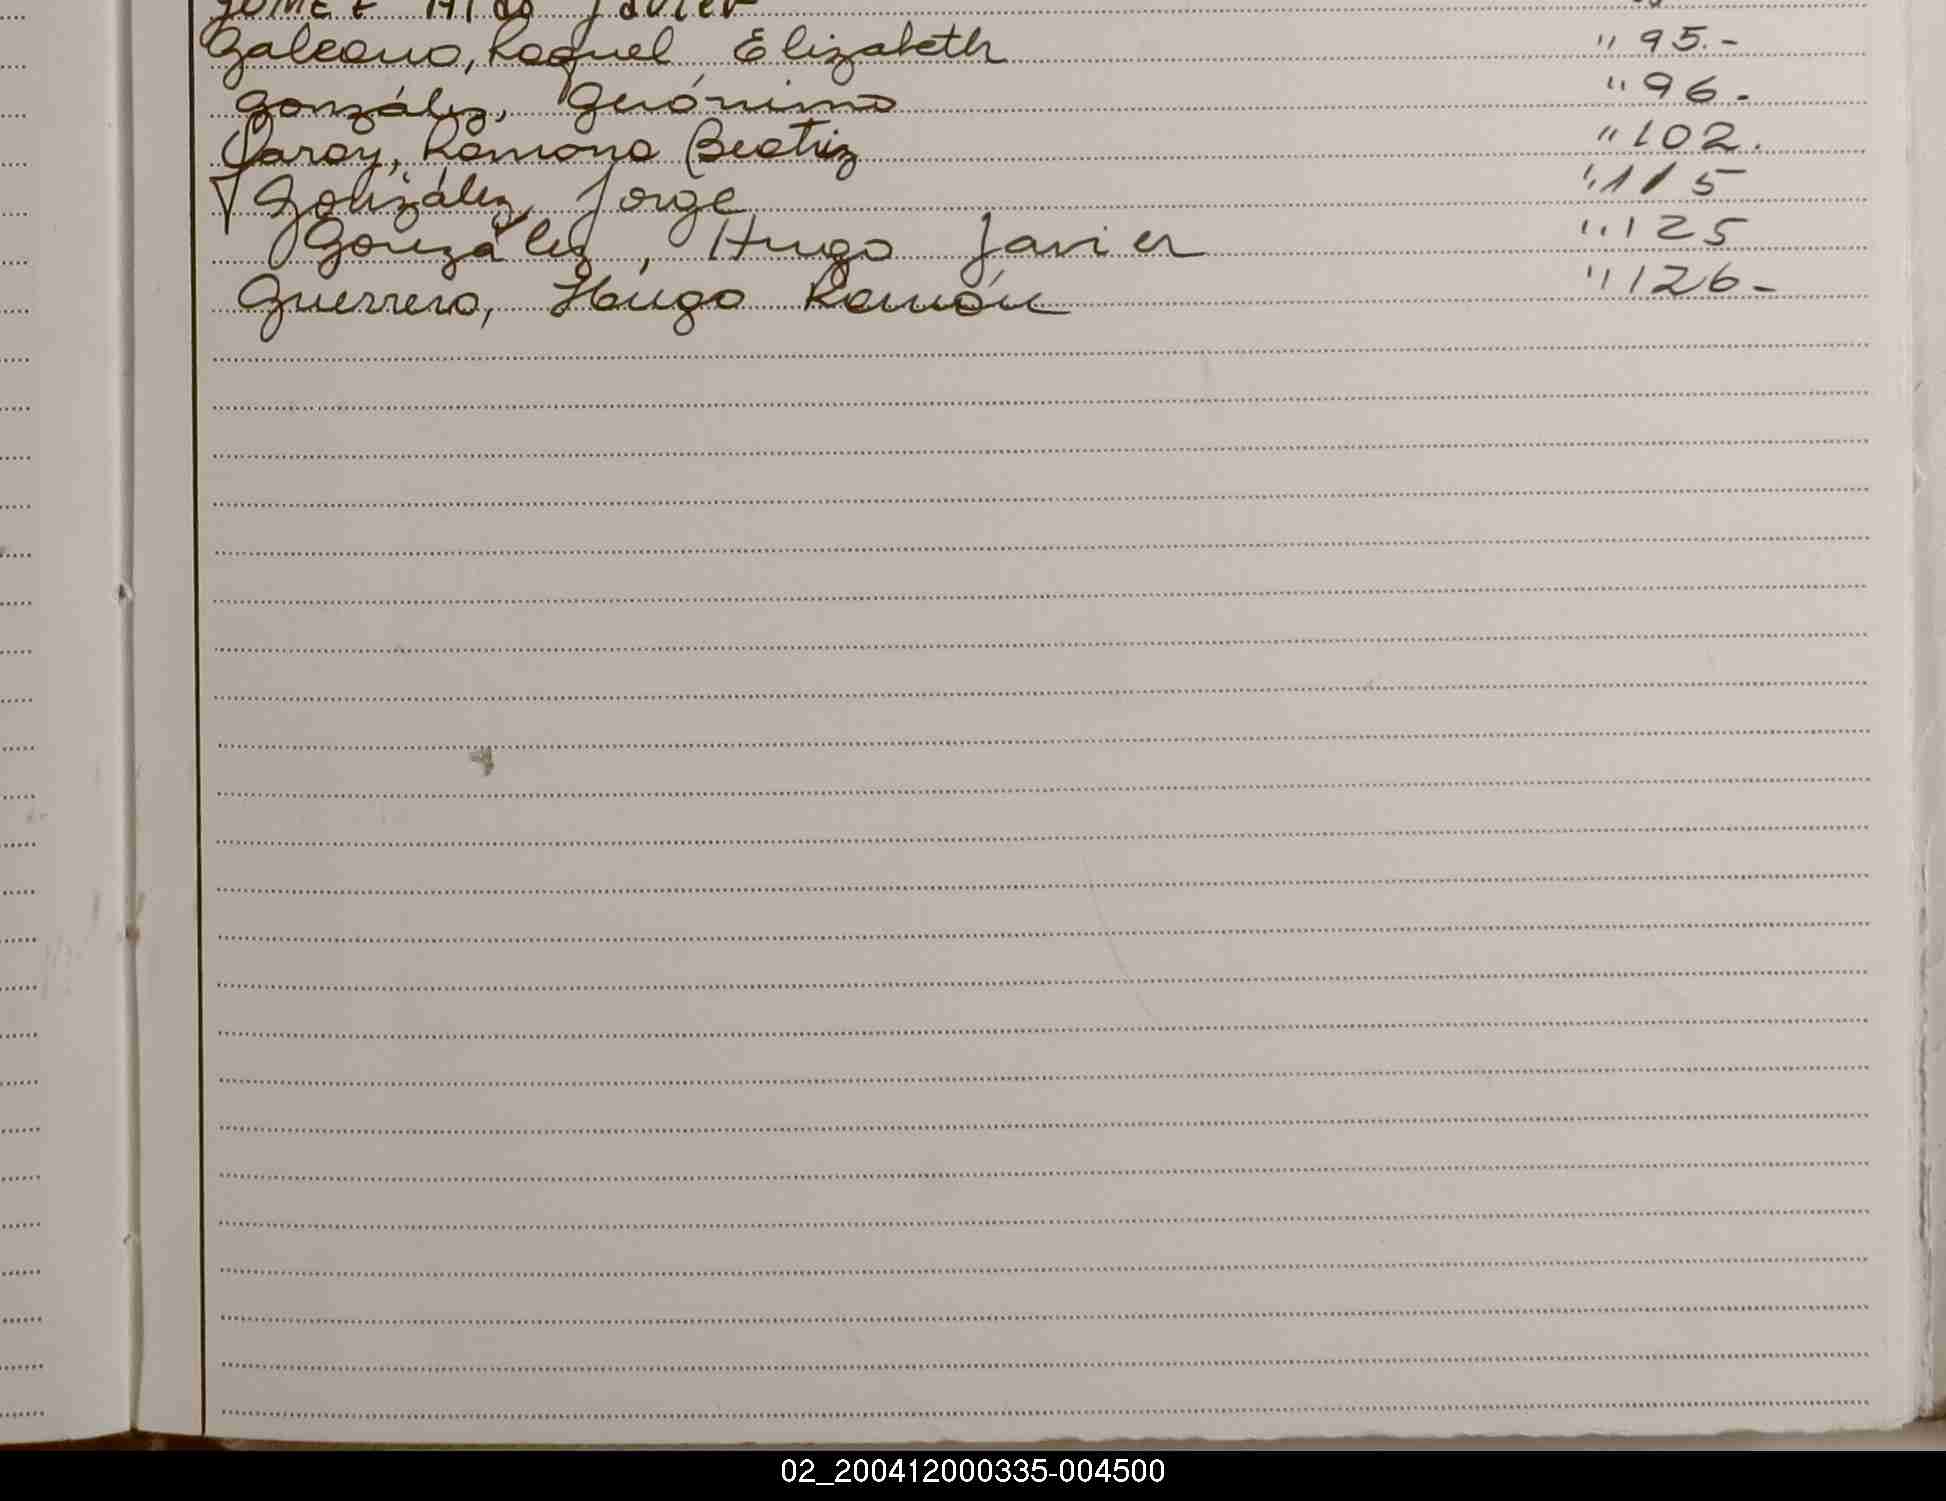 Galeano, Raquel Elizabeth " 95.-
González, Gerónimo " 96.-
Garay, Ramona Beatriz " 102.
González, Jorge " 115
González, Hugo Javier " 125
Guerrero, Hugo Ramón " 126-
02_200412000335-004500